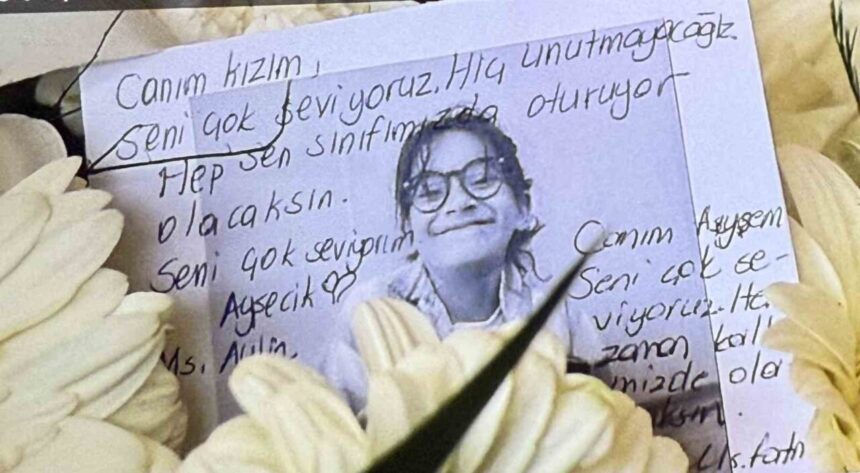 Canım kızım,
Seni çok seviyoruz. Hiç unutmayacağız.
Hep sen sınıfımızda oturuyor
olacaksın.
Seni çok seviyorum
Ayşecik
Ms. Aylin.
Canım Ayşem
Seni çok se-
viyoruz. He
zaman kal
mizde ola
ksın.
Ms.